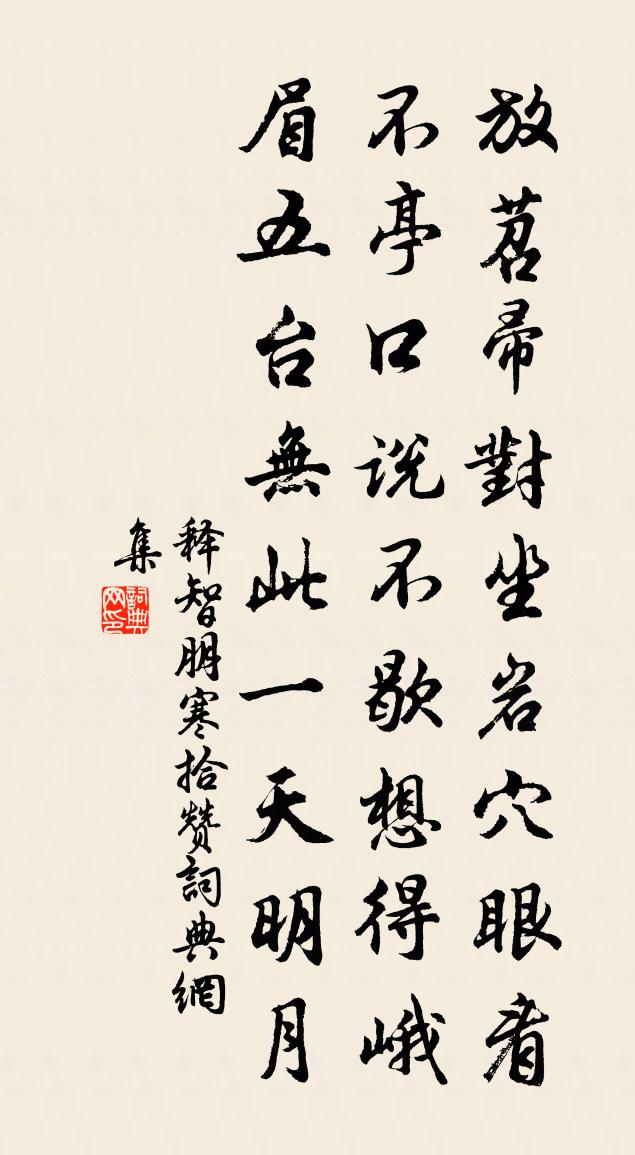 放苕帚對坐岩穴眼看
不亭口説不歇想得峨
眉五台無此一天明月
释智朋寒拾赞詞典網
集
詞典
网印